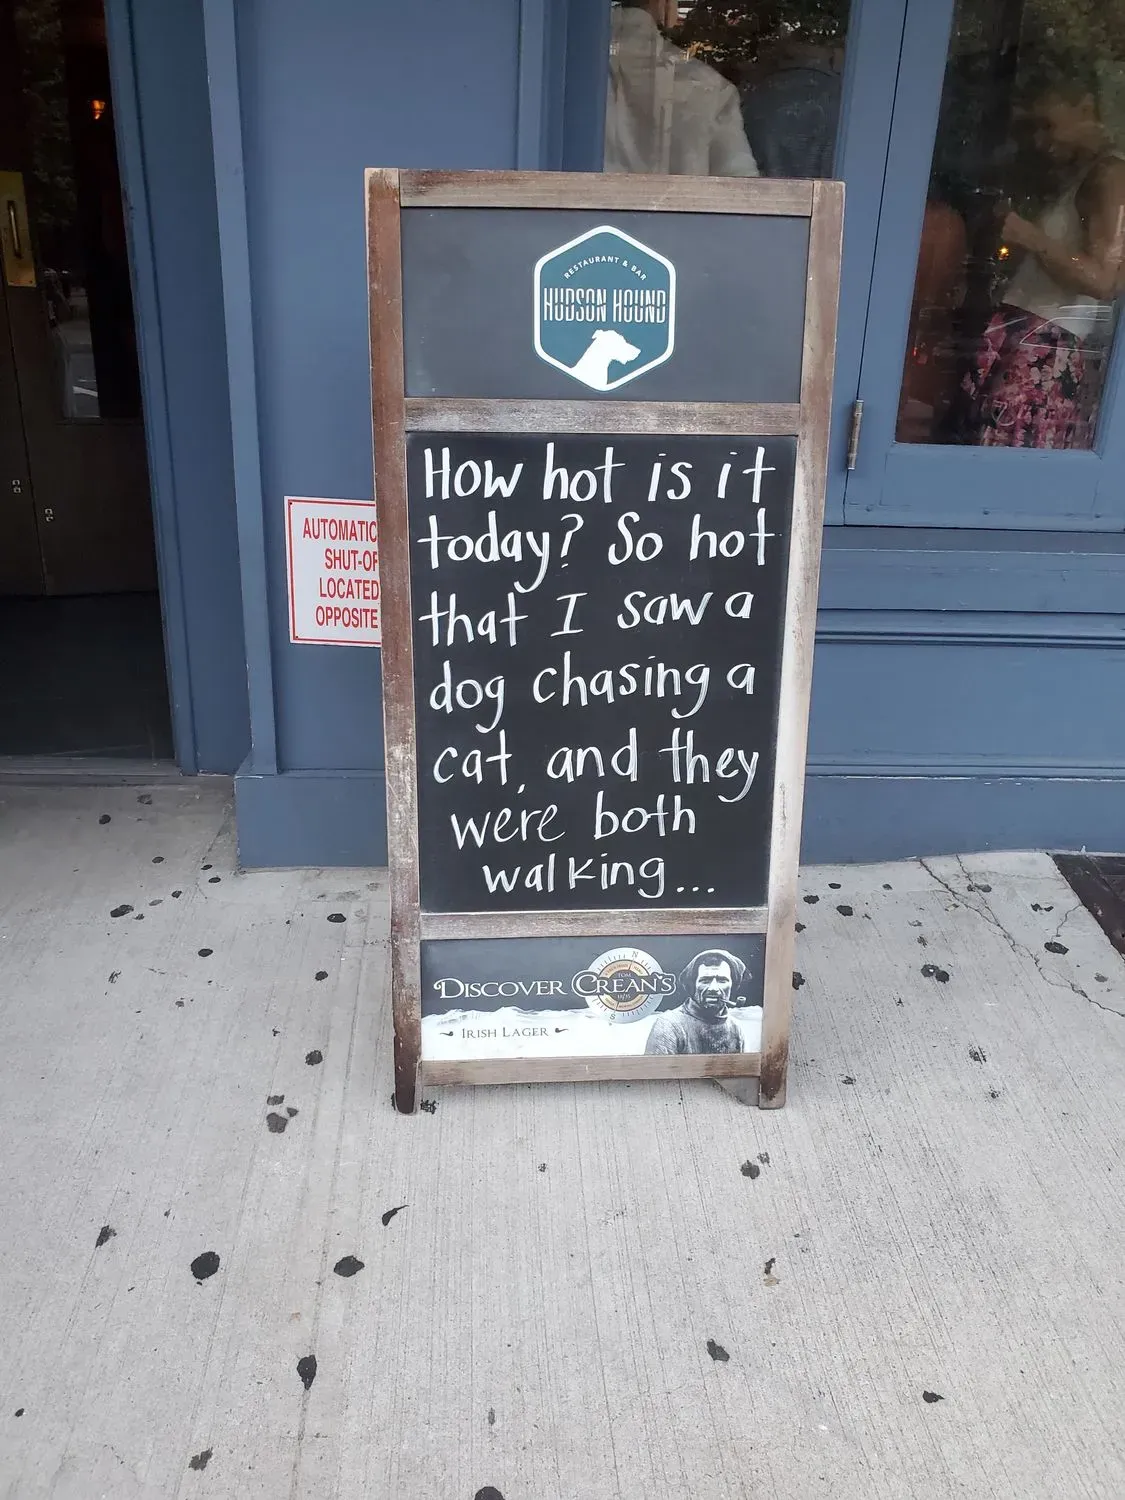 RESTAURANT & BAR
HUDSON HOUND
How hot is it
today? So hot
that I saw a
dog chasing a
cat, and they
were both
walking...
AUTOMATIC
SHUT-OF
LOCATED
OPPOSITE
DISCOVER CREAN'S
TOM
N
S
IRISH LAGER